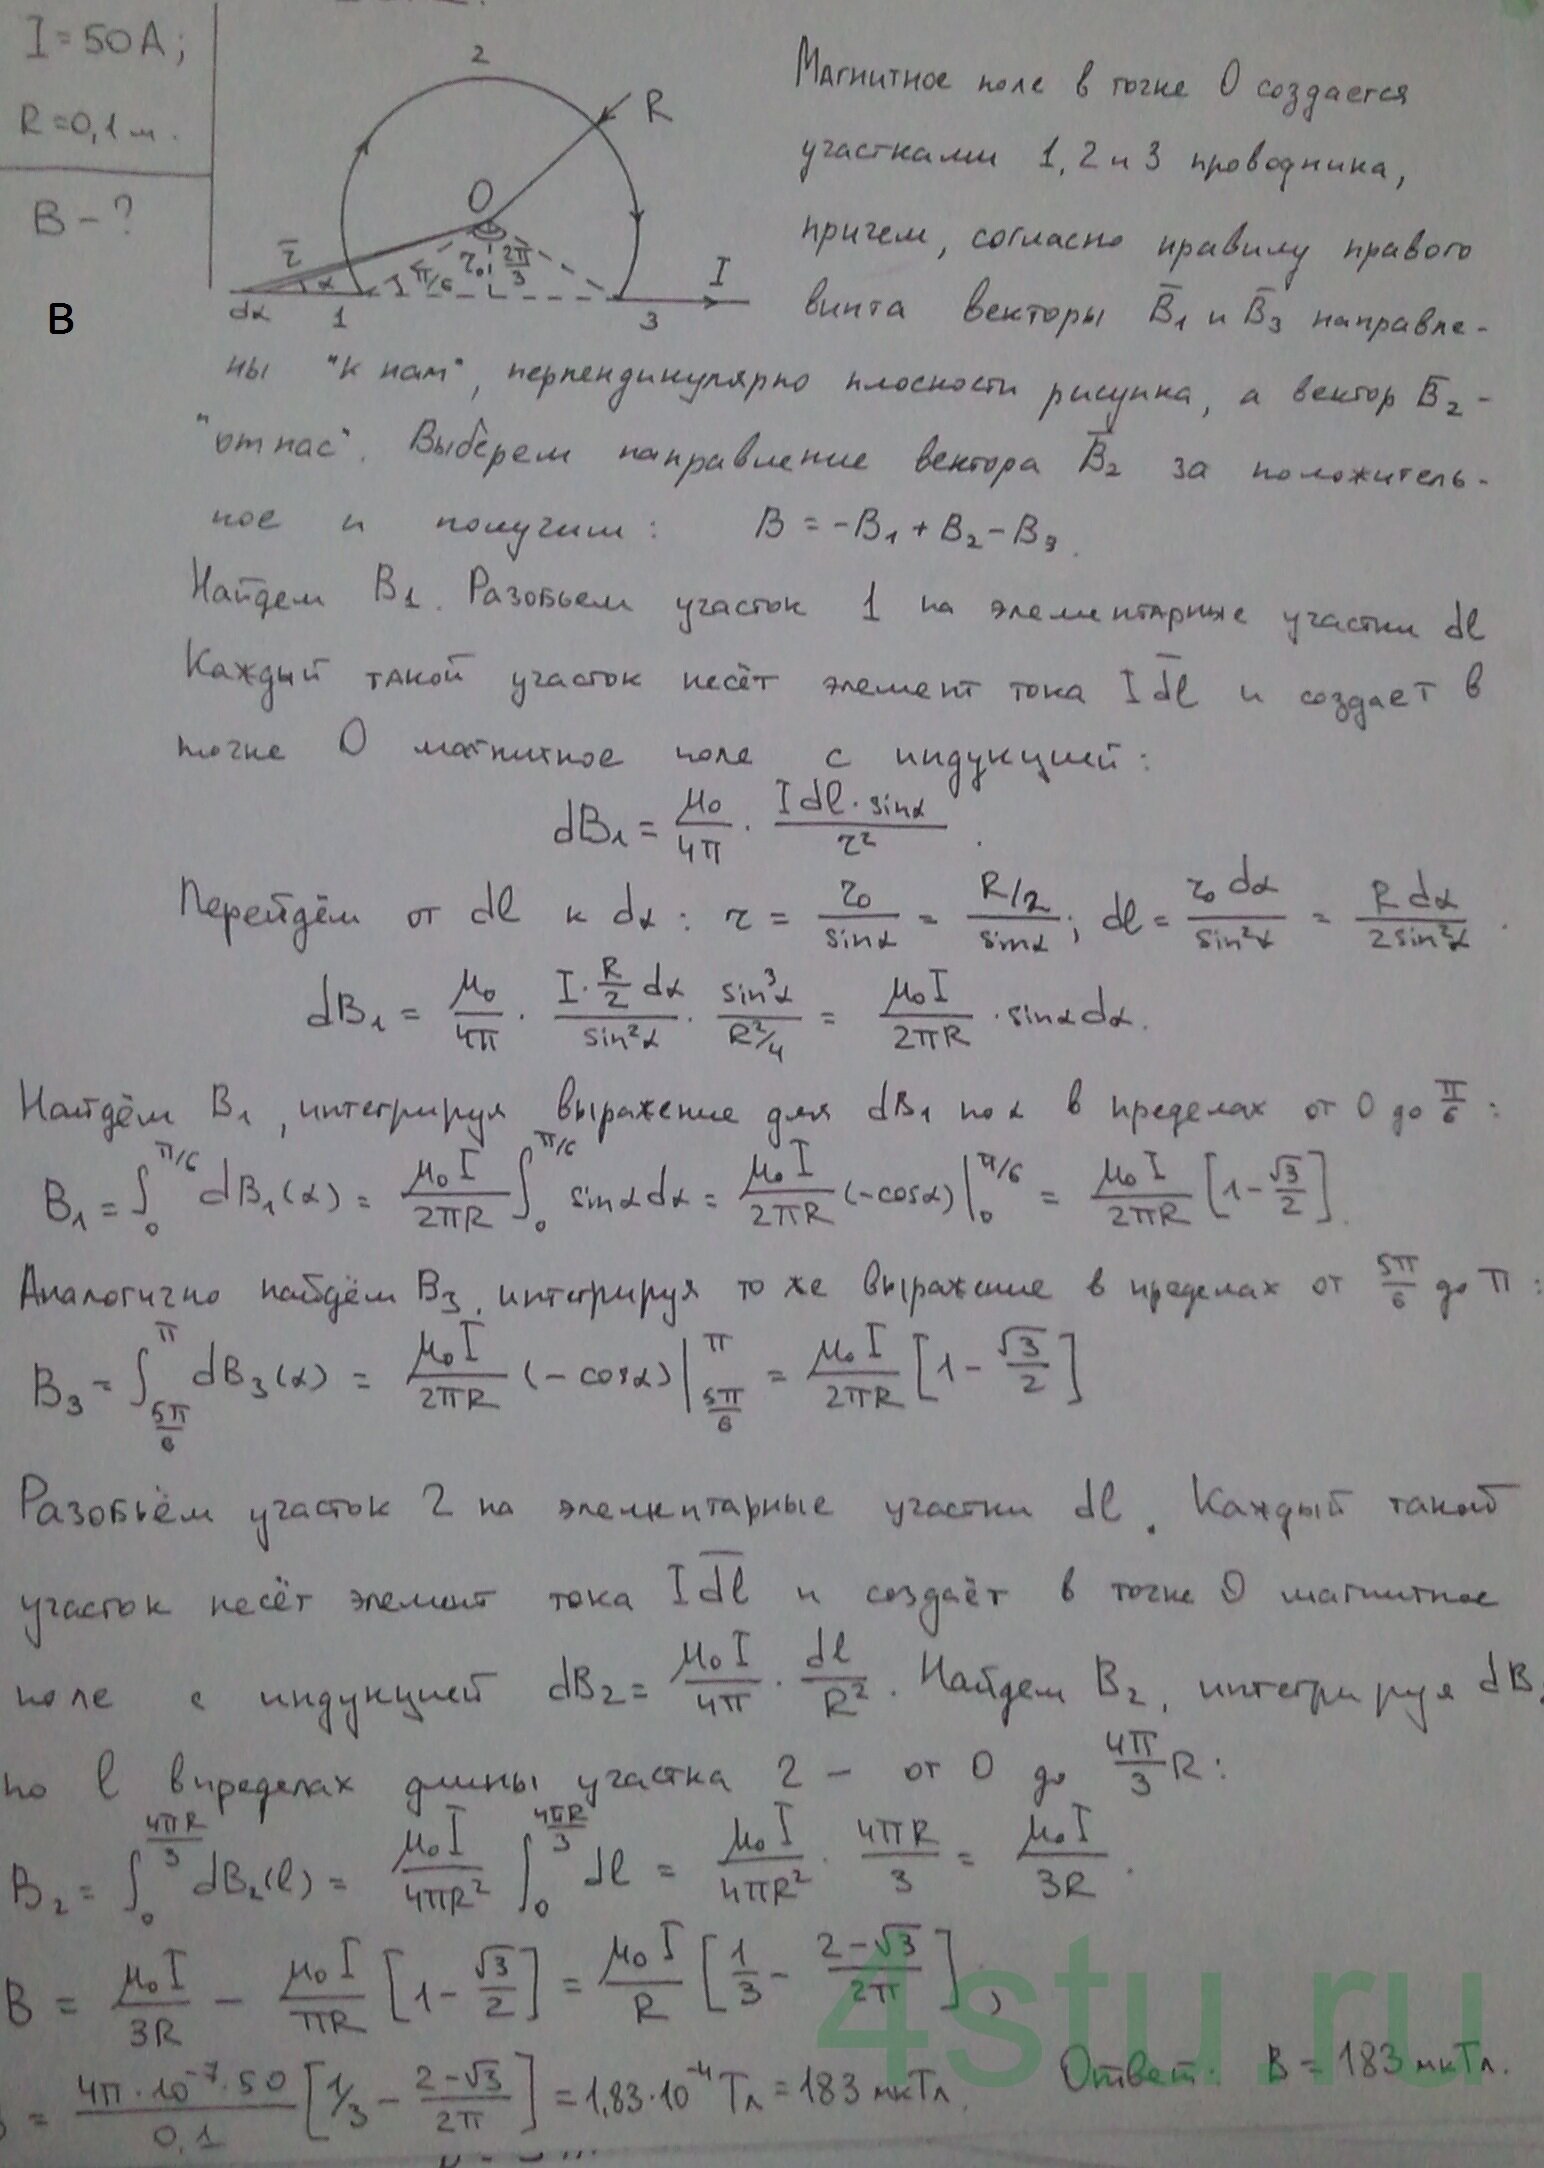 I = 50 А;
R = 0,1 м.
B - ?
В
2
R
O
r̄
α
π/6
r₀
2π/3
I
dα
1
3
Магнитное поле в точке O создается
участками 1, 2 и 3 проводника,
причем, согласно правилу правого
винта векторы B̄₁ и B̄₃ направле-
ны "к нам", перпендикулярно плоскости рисунка, а вектор B̄₂ -
"от нас". Выберем направление вектора B̄₂ за положитель-
ное и получим: B = -B₁ + B₂ - B₃.
Найдем B₁. Разобьем участок 1 на элементарные участки dl
Каждый такой участок несёт элемент тока I d̄l и создает в
точке O магнитное поле с индукцией:
dB₁ = μ₀/4π · I dl · sinα / r².
Перейдём от dl к dα: r = r₀/sinα = (R/2)/sinα; dl = r₀ dα/sin²α = R dα/2sin²α.
dB₁ = μ₀/4π · (I · R/2 dα)/sin²α · sin³α/(R²/4) = μ₀I/2πR · sinα dα.
Найдём B₁, интегрируя выражение для dB₁ по α в пределах от 0 до π/6:
B₁ = ∫₀^(π/6) dB₁(α) = μ₀I/2πR ∫₀^(π/6) sinα dα = μ₀I/2πR (-cosα)|₀^(π/6) = μ₀I/2πR [1 - √3/2].
Аналогично найдём B₃, интегрируя то же выражение в пределах от 5π/6 до π:
B₃ = ∫_(5π/6)^π dB₃(α) = μ₀I/2πR (-cosα)|_(5π/6)^π = μ₀I/2πR [1 - √3/2]
Разобьём участок 2 на элементарные участки dl. Каждый такой
участок несёт элемент тока I d̄l и создаёт в точке O магнитное
поле с индукцией dB₂ = μ₀I/4π · dl/R². Найдем B₂, интегрируя dB₂
по l в пределах длины участка 2 - от 0 до 4π/3 R:
B₂ = ∫₀^(4πR/3) dB₂(l) = μ₀I/4πR² ∫₀^(4πR/3) dl = μ₀I/4πR² · 4πR/3 = μ₀I/3R.
B = μ₀I/3R - μ₀I/πR [1 - √3/2] = μ₀I/R [1/3 - (2-√3)/2π];
= 4π·10⁻⁷·50/0,1 [1/3 - (2-√3)/2π] = 1,83·10⁻⁴ Тл = 183 мкТл.
Ответ: B = 183 мкТл.
4stu.ru